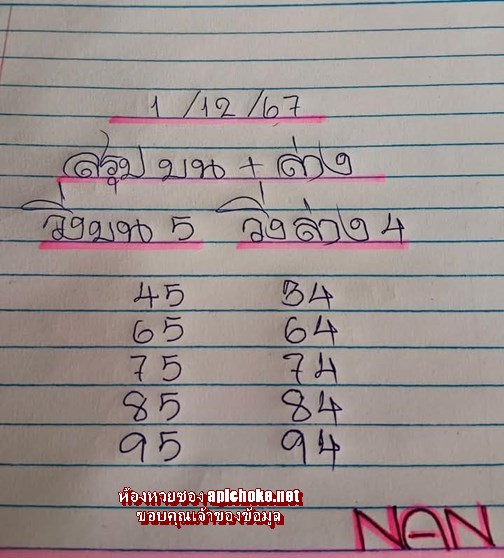 1/12/67
สรุป บน + ล่าง
วิ่งบน 5 วิ่งล่าง 4
45 34
65 64
75 74
85 84
95 94
ห้องหวยซอง apichoke.net
ขอบคุณเจ้าของข้อมูล
NAN